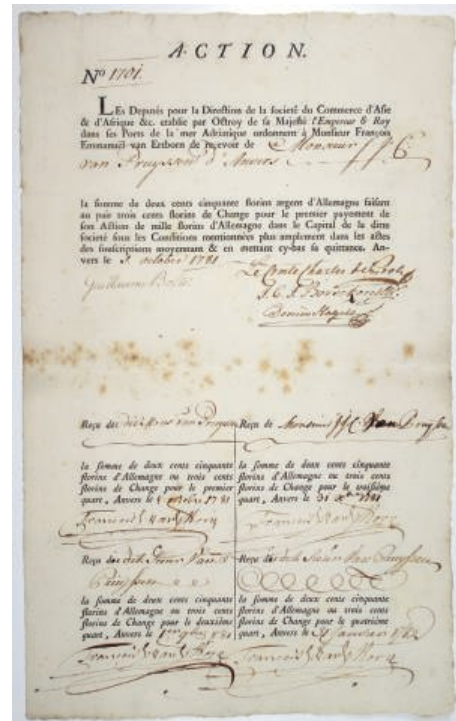 ACTION.
No 1701.
LEs Deputés pour la Direction de la societé du Commerce d'Asie
& d'Afrique &c. etablie par Octroy de sa Majesté l'Empereur & Roy
dans ses Ports de la mer Adriatique ordonnent à Monsieur François
Emmanuël van Ertborn de recevoir de Monsieur
van d'Anvers
la somme de deux cents cinquante florins argent d'Allemagne faisant
au pair trois cents florins de Change pour le premier payement de
son Action de mille florins d'Allemagne dans le Capital de la ditte
societé sous les Conditions mentionnées plus amplement dans les actes
des souscriptions moyennant & en mettant cy-bas sa quittance. An-
vers le october 1781
Le Comte Charles de Proli
Guillaume Bolts
Reçu du dit van
la somme de deux cents cinquante
florins d'Allemagne ou trois cents
florins de Change pour le premier
quart, Anvers le 1781
Reçu de Monsieur Van
la somme de deux cents cinquante
florins d'Allemagne ou trois cents
florins de Change pour le troisième
quart, Anvers le 31 1781
Reçu du dit Sieur Van
la somme de deux cents cinquante
florins d'Allemagne ou trois cents
florins de Change pour le deuxième
quart, Anvers le 1781
Reçu du dit Sieur Van
la somme de deux cents cinquante
florins d'Allemagne ou trois cents
florins de Change pour le quatrième
quart, Anvers le 31 Janvier 1782